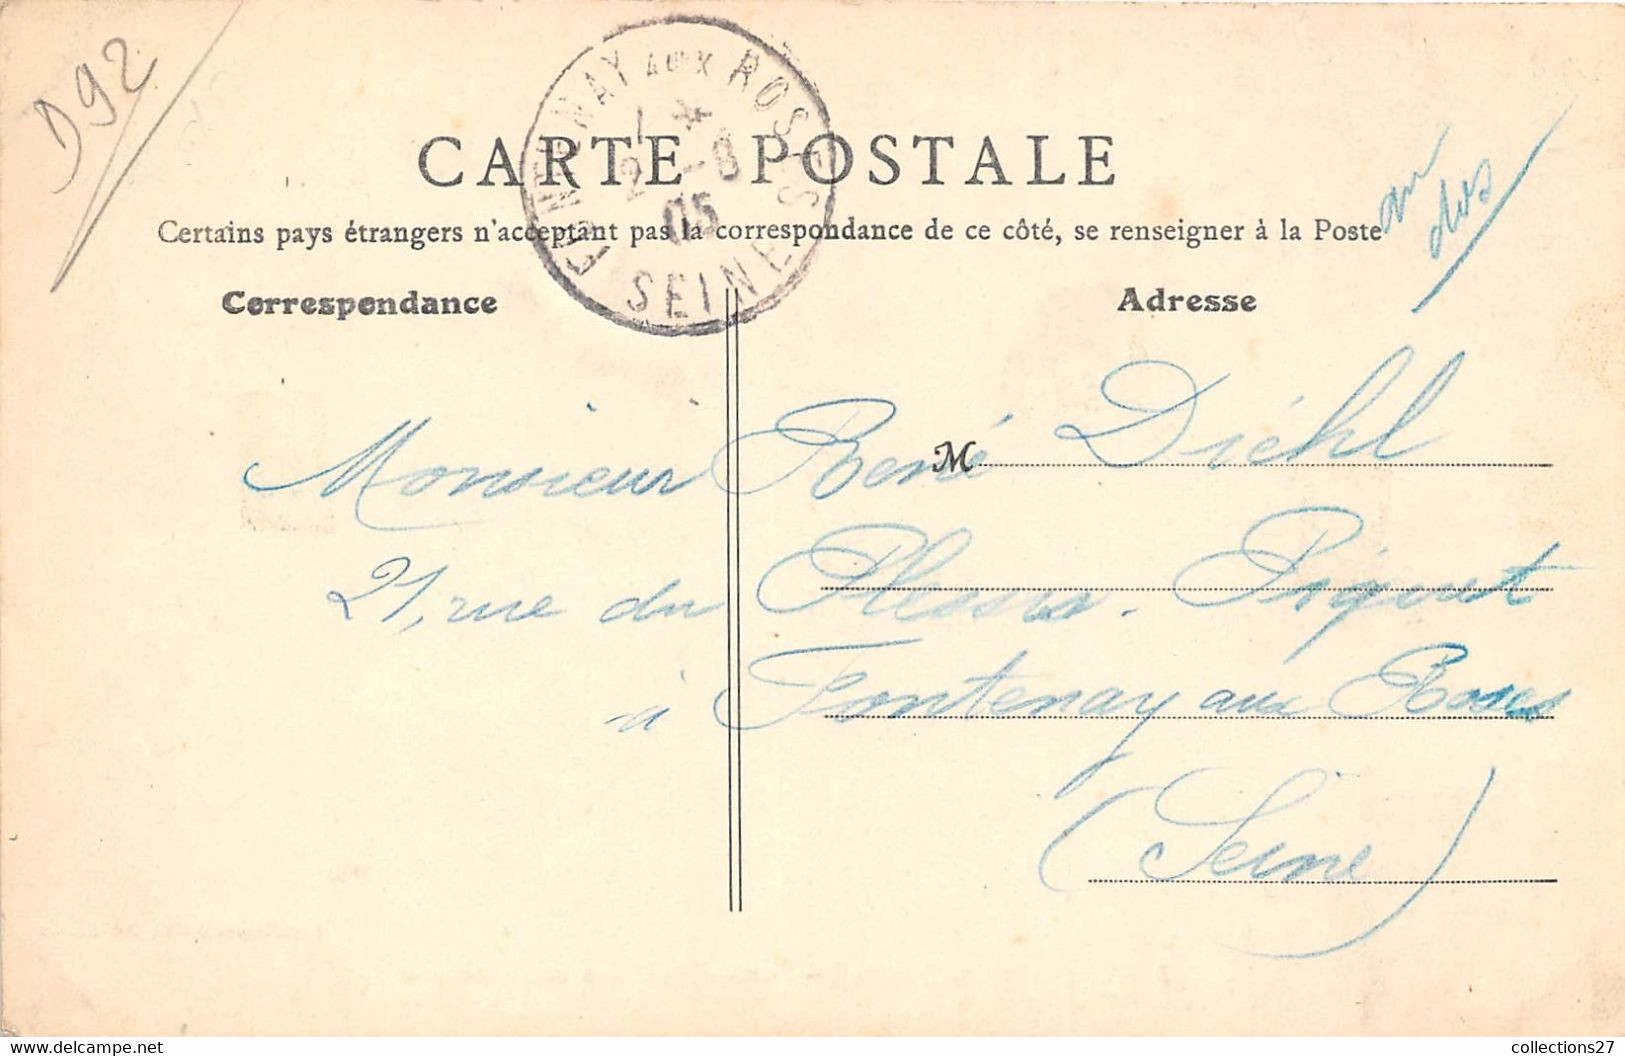 D92
FONTENAY AUX ROSES
05
SEINE
CARTE POSTALE
Certains pays étrangers n'acceptent pas la correspondance de ce côté, se renseigner à la Poste
au
dos
Correspondance
Adresse
M
Monsieur René Diéhl
21, rue du Plessis-Piquet
à Fontenay aux Roses
(Seine)
www.delcampe.net
collections27